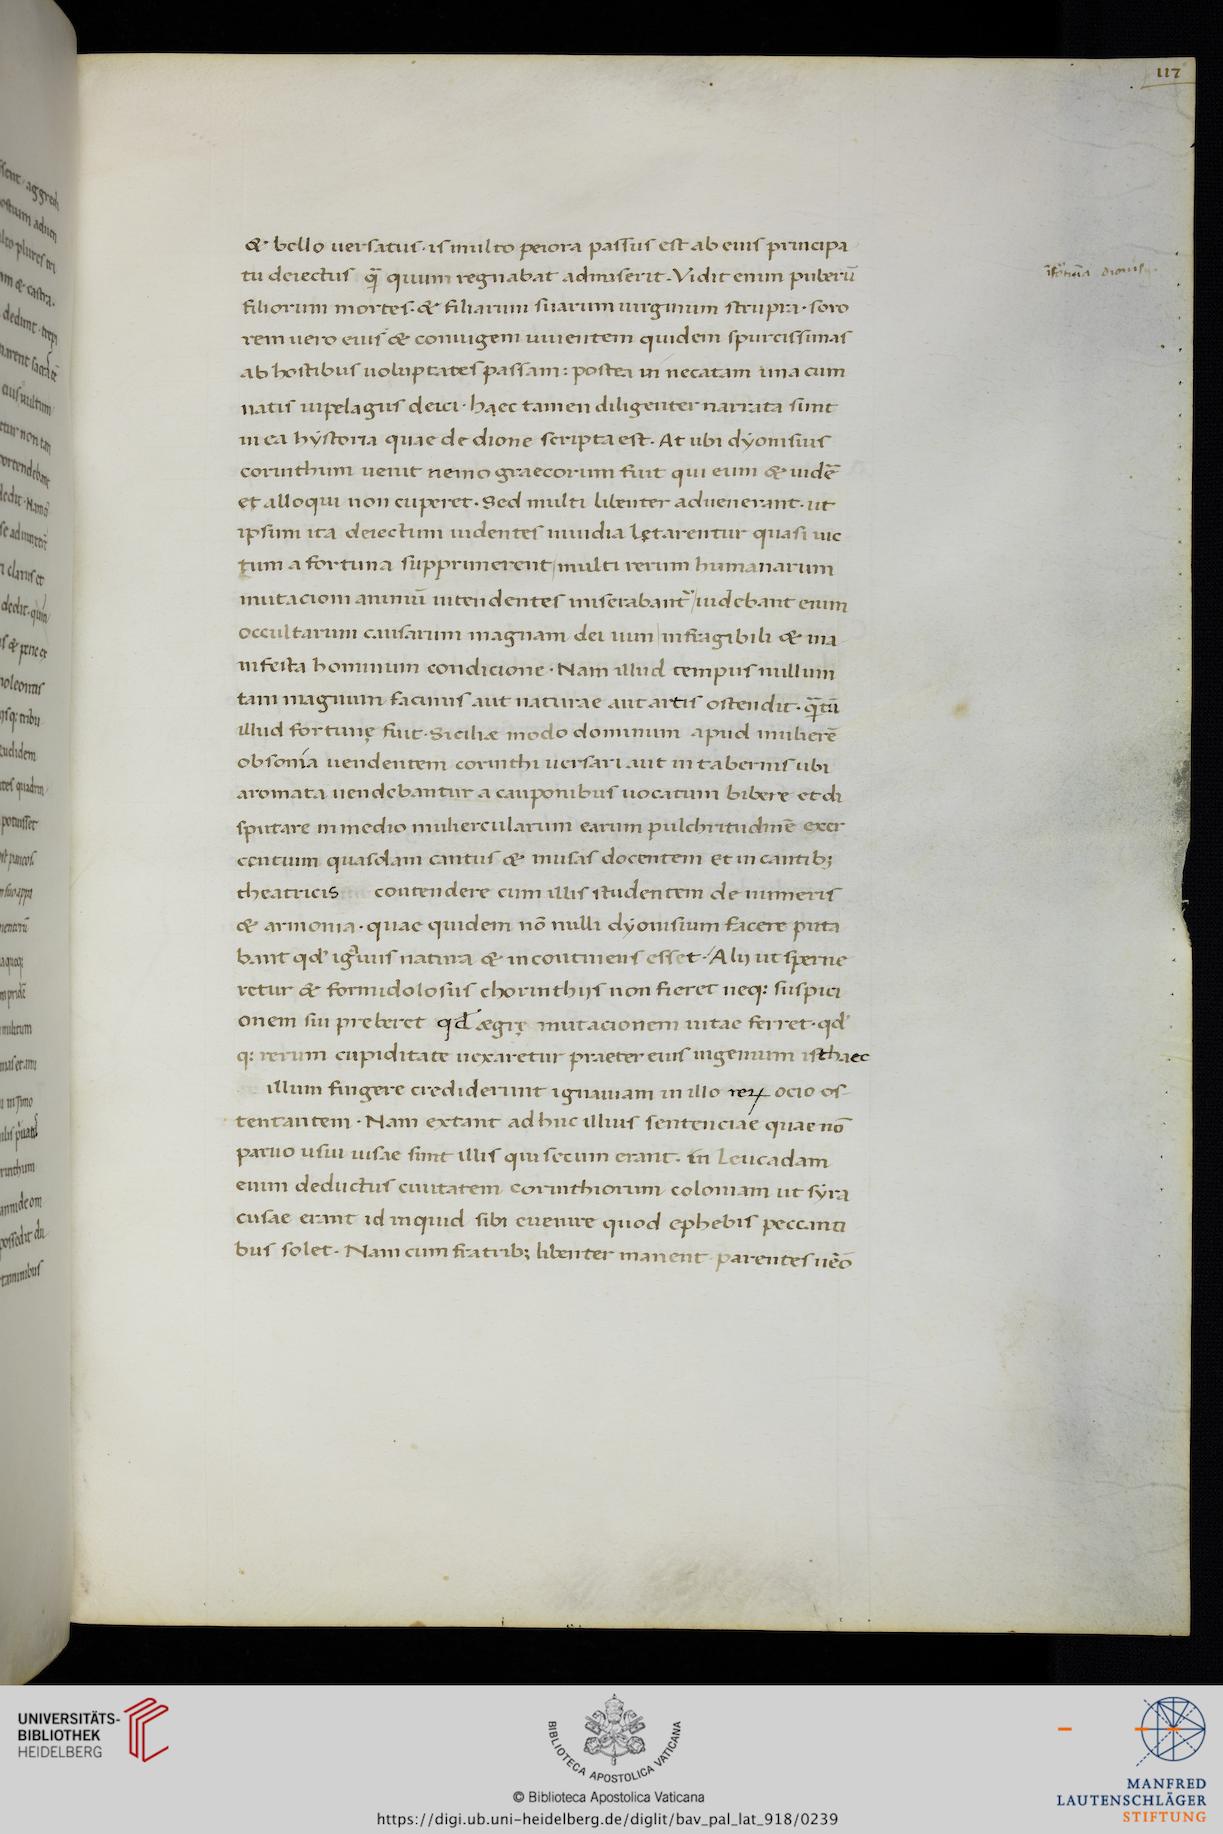 117
& bello uersatus · is multo peiora passus est ab eius principa
tu deiectus quā quum regnabat admiserit · Vidit enim puberū
filiorum mortes · & filiarum suarum uirginum strupra · soro
rem uero eius & coniugem uiuentem quidem spurcissimas
ab hostibus uoluptates passam : postea in necatam una cum
natis in pelagus deici · hęc tamen diligenter narrata sunt
in ea hystoria quae de dione scripta est · At ubi dyonisius
corinthum uenit nemo graecorum fuit qui eum & uidē
et alloqui non cuperet · Sed multi libenter aduenerant · ut
ipsum ita deiectum uidentes inuidia lętarentur quasi uic
tum a fortuna supprimerent / multi rerum humanarum
mutacioni animū intendentes miserabant᷑ / uidebant enim
occultarum causarum magnam dei uim / in fragibili & ma
nifesta hominum condicione · Nam illud tempus nullum
tam magnum facinus aut naturae aut artis ostendit · quātū
illud fortunę fuit · Siciliæ modo dominum apud mulierē
obsonia uendentem corinthi uersari aut in tabernis ubi
aromata uendebantur a cauponibus uocatum bibere et di
sputare in medio muliercularum earum pulchritudinē exer
centium quasdam cantus & musas docentem et in cantib;
theatricis contendere cum illis studentem de numeris
& armonia · quae quidem nō nulli dyonisium facere puta
bant qđ ignauus natura & incontinens esset · Alij ut sperne
retur & formidolosus chorinthijs non fieret neq: suspici
onem sui preberet qđ ægrę mutacionem uitae ferret · qđ
q: rerum cupiditate uexaretur praeter eius ingenium isthaec
illum fingere crediderunt ignauiam in illo reꝝ ocio os-
tentantem · Nam extant adhuc illius sentenciae quae nō
paruo usui uisae sunt illis qui secum erant · in Leucadam
enim deductus ciuitatem corinthiorum coloniam ut syra
cusae erant id inquid sibi euenire quod ephebis peccanti
bus solet · Nam cum fratrib; libenter manent parentes uēo
UNIVERSITÄTS-
BIBLIOTHEK
HEIDELBERG
BIBLIOTECA APOSTOLICA VATICANA
© Biblioteca Apostolica Vaticana
https://digi.ub.uni-heidelberg.de/diglit/bav_pal_lat_918/0239
MANFRED
LAUTENSCHLÄGER
STIFTUNG